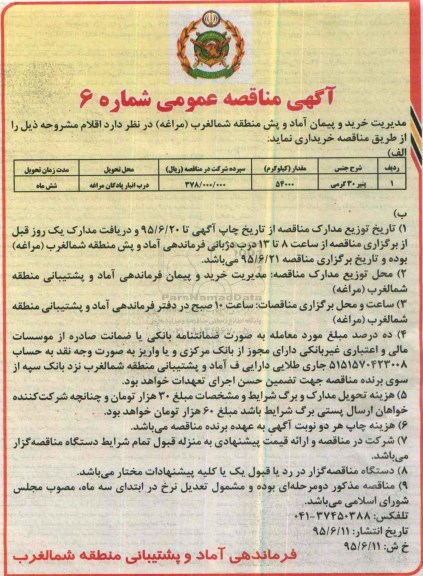 آگهی مناقصه عمومی شماره ۶
مدیریت خرید و پیمان آماد و پش منطقه شمالغرب (مراغه) در نظر دارد اقلام مشروحه ذیل را
از طریق مناقصه خریداری نماید.
الف)
ردیف شرح جنس مقدار (کیلوگرم) سپرده شرکت در مناقصه (ریال) محل تحویل مدت زمان تحویل
۱ پنیر ۳۰ گرمی ۵۴۰۰۰ ۳۷۸/۰۰۰/۰۰۰ درب انبار پادگان مراغه شش ماه
ب)
۱) تاریخ توزیع مدارک مناقصه از تاریخ چاپ آگهی تا ۹۵/۶/۲۰ و دریافت مدارک یک روز قبل
از برگزاری مناقصه از ساعت ۸ تا ۱۳ درب دژبانی فرماندهی آماد و پش منطقه شمالغرب (مراغه)
بوده و تاریخ برگزاری مناقصه ۹۵/۶/۲۱ می‌باشد.
۲) محل توزیع مدارک مناقصه: مدیریت خرید و پیمان فرماندهی آماد و پشتیبانی منطقه
شمالغرب (مراغه)
۳) ساعت و محل برگزاری مناقصات: ساعت ۱۰ صبح در دفتر فرماندهی آماد و پشتیبانی منطقه
شمالغرب (مراغه)
۴) ده درصد مبلغ مورد معامله به صورت ضمانتنامه بانکی یا ضمانت صادره از موسسات
مالی و اعتباری غیربانکی دارای مجوز از بانک مرکزی و یا واریز به صورت وجه نقد به حساب
۵۱۵۱۵۷۰۴۲۳۰۰۸ جاری طلایی دارایی ف آماد و پشتیبانی منطقه شمالغرب نزد بانک سپه از
سوی برنده مناقصه جهت تضمین حسن اجرای تعهدات خواهد بود.
۵) هزینه تحویل مدارک و برگ شرایط و مشخصات مبلغ ۳۰ هزار تومان و چنانچه شرکت‌کننده
خواهان ارسال پستی برگ شرایط باشد مبلغ ۶۰ هزار تومان خواهد بود.
۶) هزینه چاپ هر دو نوبت آگهی به عهده برنده مناقصه می‌باشد.
۷) شرکت در مناقصه و ارائه قیمت پیشنهادی به منزله قبول تمام شرایط دستگاه مناقصه‌گزار
می‌باشد.
۸) دستگاه مناقصه‌گزار در رد یا قبول یک یا کلیه پیشنهادات مختار می‌باشد.
۹) مناقصه مذکور دومرحله‌ای بوده و مشمول تعدیل نرخ در ابتدای سه ماه، مصوب مجلس
شورای اسلامی می‌باشد.
تلفکس: ۳۷۴۵۰۳۸۸-۰۴۱
تاریخ انتشار: ۹۵/۶/۱۱
خ ش: ۹۵/۶/۱۱
فرماندهی آماد و پشتیبانی منطقه شمالغرب